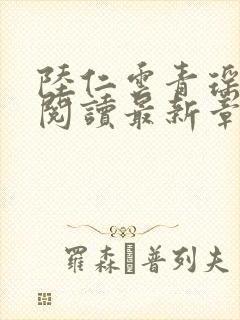 陸仁雲青瑤
閱讀最新章
羅森普列夫